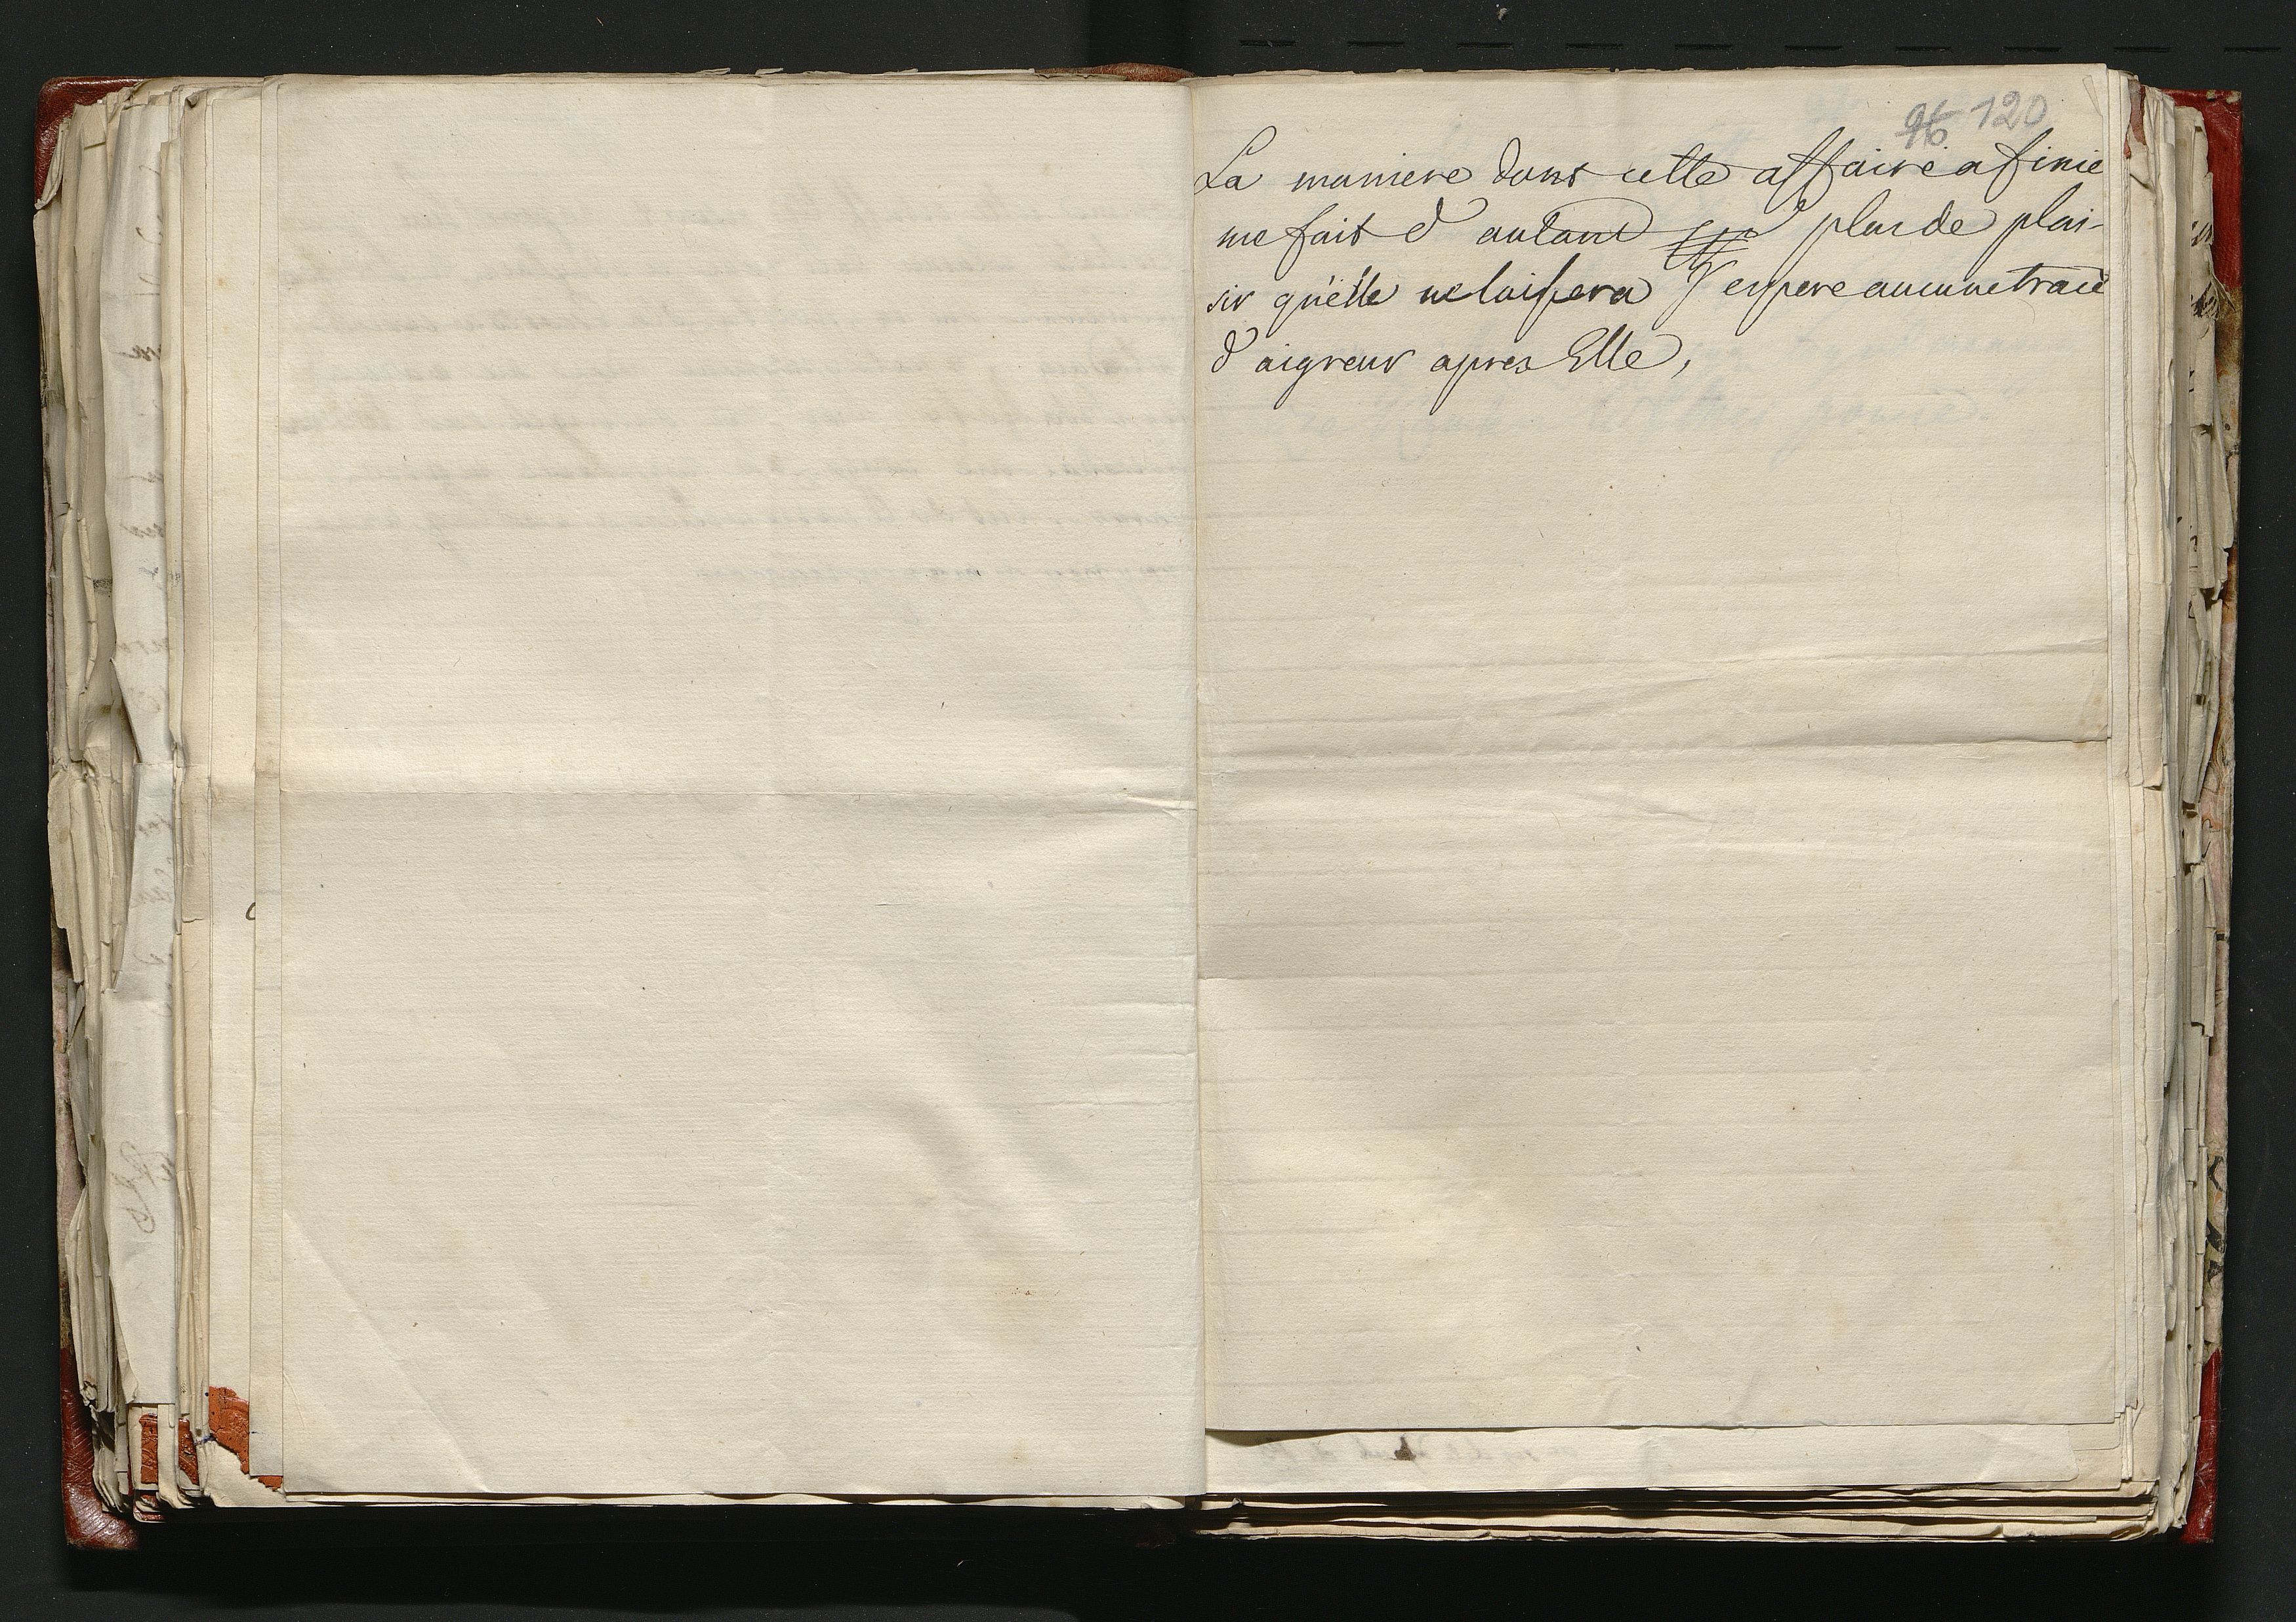 96 120
La maniere dont cette affaire a finie
me fait d'autant plus de plai-
sir qu'elle ne laissera j'espere aucune trace
d'aigreur apres Elle,